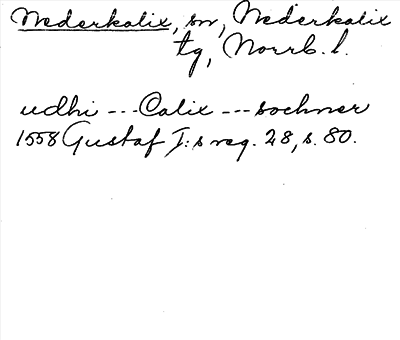 Nederkalix, sn, Nederkalix
tg, Norrb. l.
udhi --- Calix --- sochner
1558 Gustaf I:s reg. 28, s. 80.